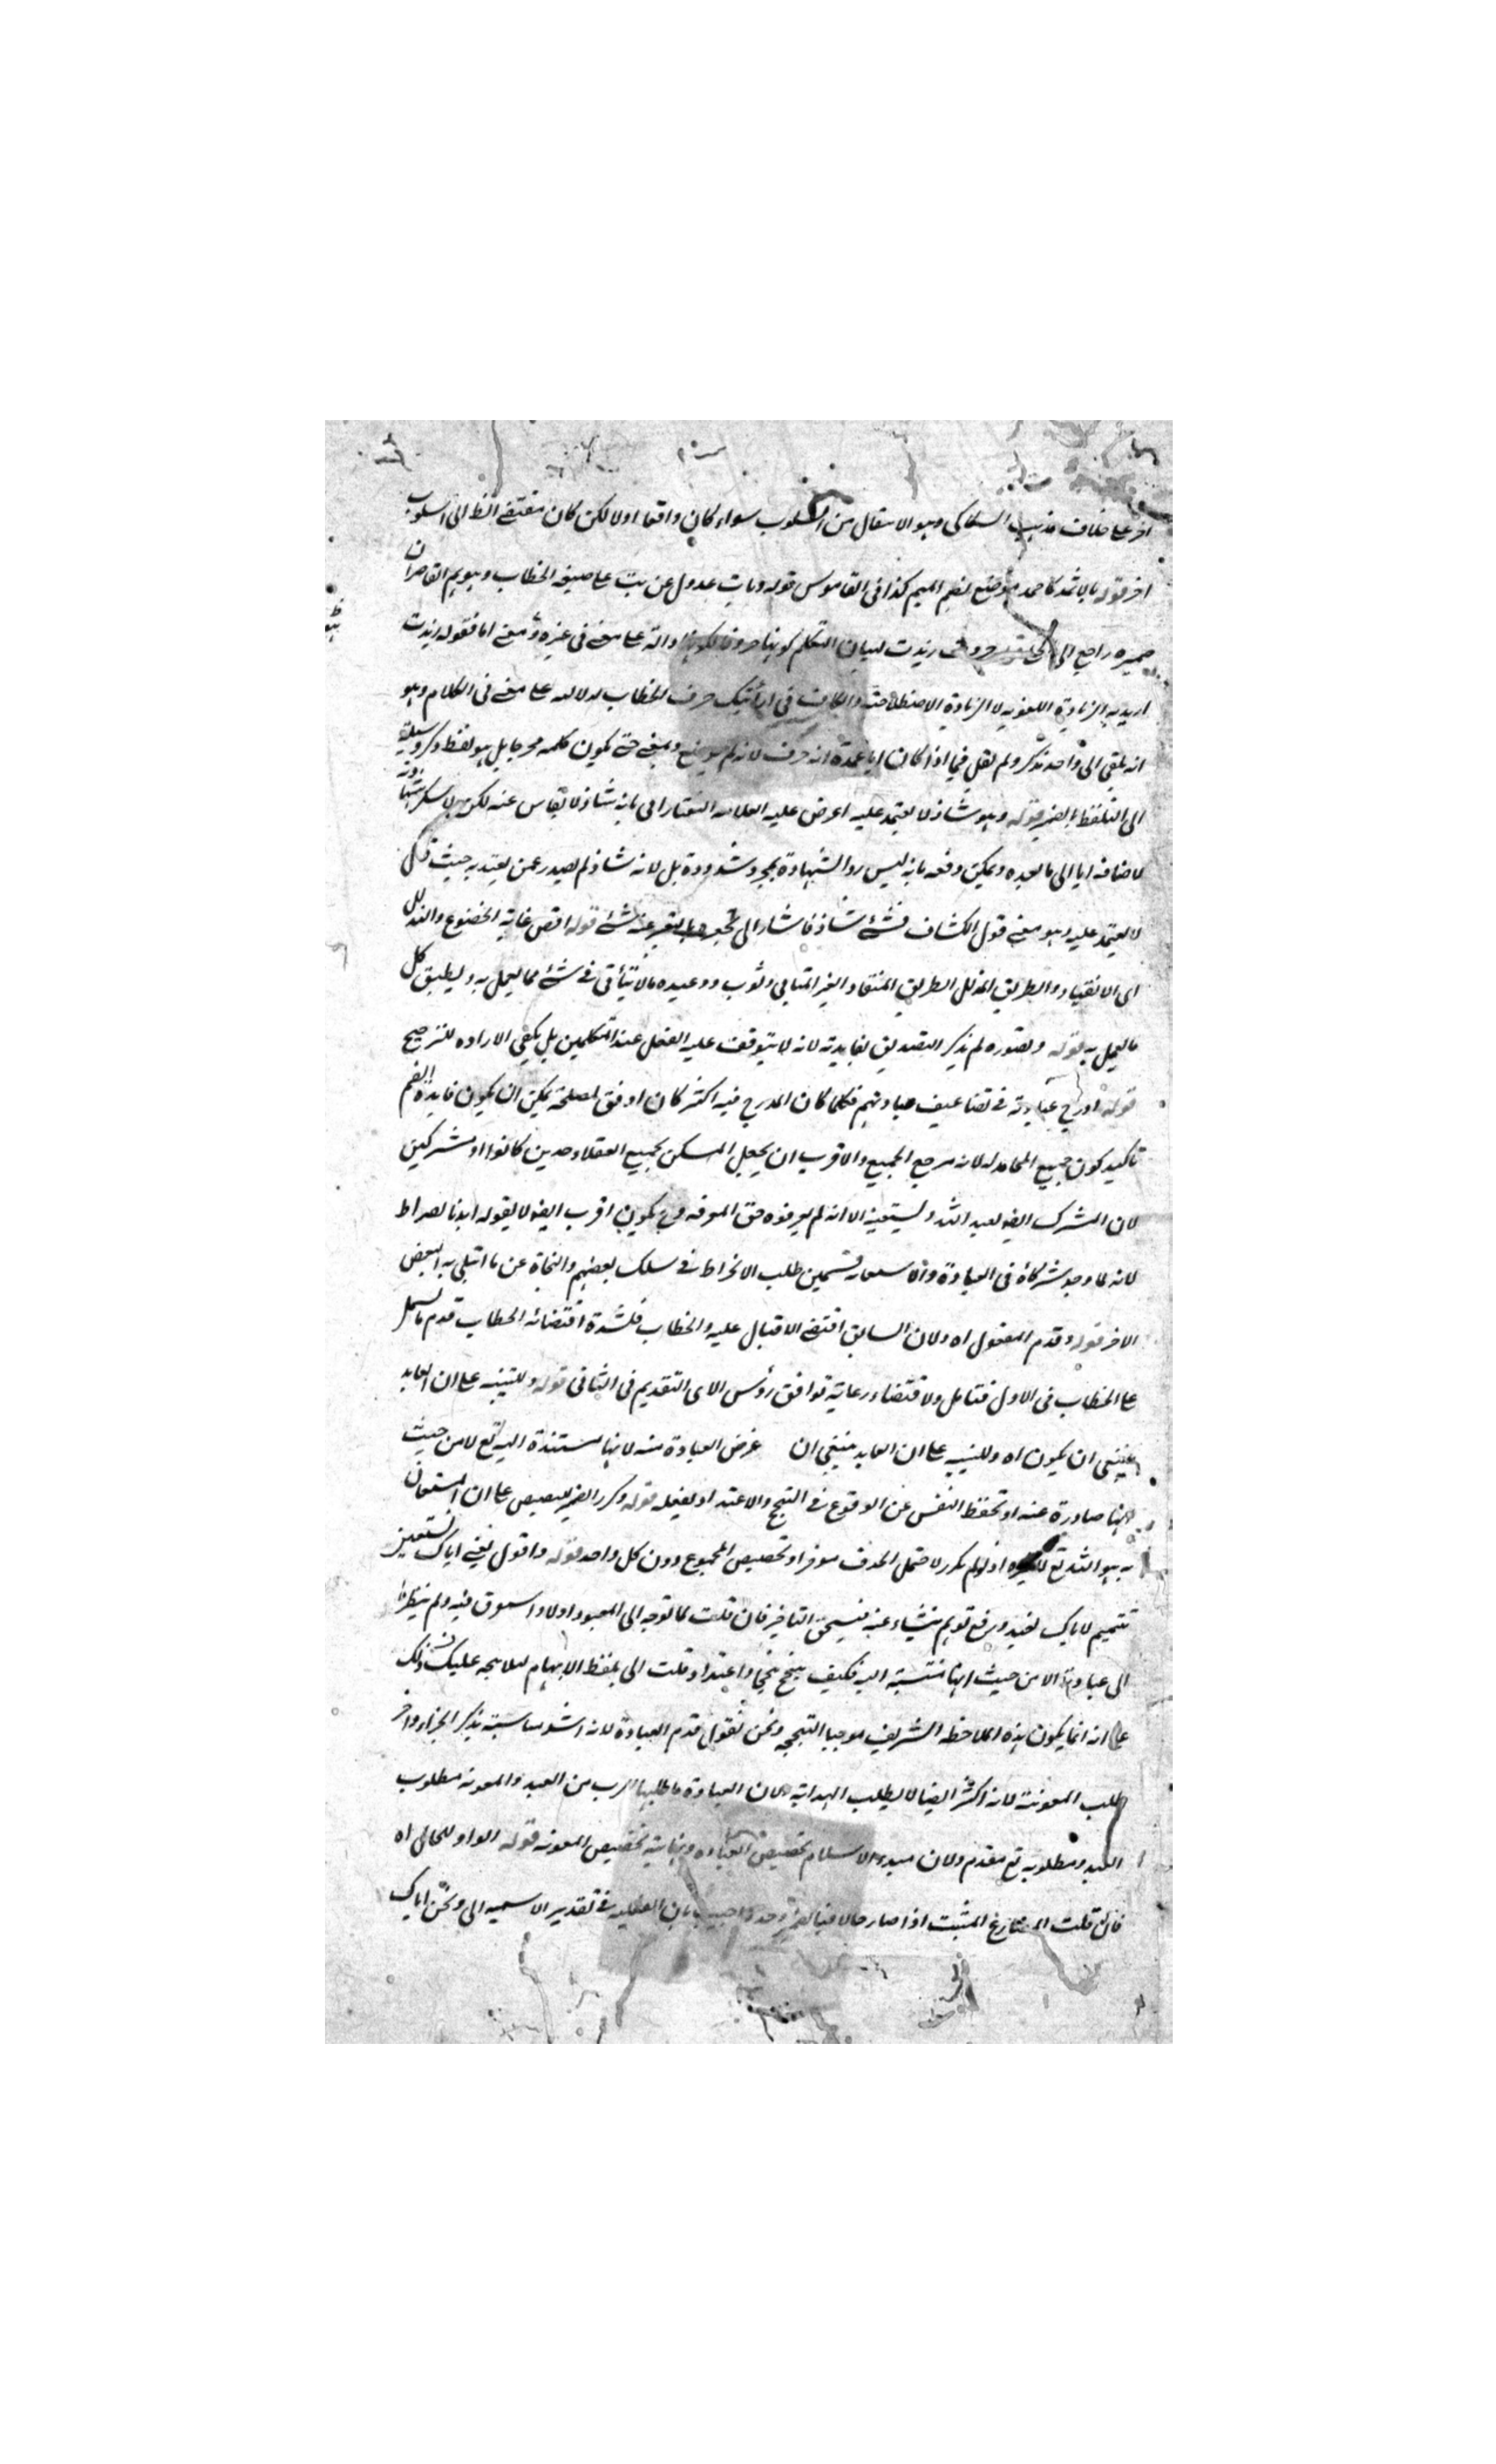 اخر على خلاف مذهب السكاكى وهو الانتقال من اسلوب سواء كان واقعا اولا لكن كان مقتضى الظ الى اسلوب
اخر قوله بالاثمد كاحمد موضع بضم الميم كذا فى القاموس قوله وبات عدول عن بت على صيغة الخطاب وهو يم القاصران
ضميره راجع الى زيدت لبيان التكلم كونها حروفا دالة على معنى فى غيره ومعنى اما فقوله زيدت
اريد به الزيادة اللغوية لا الزيادة الاصطلاحية والكاف فى ارأيتك حرف الخطاب لدلالته على معنى فى الكلام وهو
انه يلقى الى واحد مذكر ولم يقل فيما اذا كان ايا عمدة انه حرف لانه لم يوضع ومعنى حتى يكون كلمة محرجا بل هو لفظ ذكر وسيلة
الى التلفظ بالضمير قوله وهو شاذ لا يعتمد عليه اعرض عليه العلامة التفتازانى بانه شاذ لا يقاس عنه لكن
لاضافة ايا الى ما بعده ويمكن دفعه بانه ليس رد الشهادة بمجرد شذوذه بل لانه شاذ لم يصدر عمن يعتد به حيث قال
لا يعتمد عليه وهو معنى قول الكشاف فشئ شاذ فاشار الى بالتعبير عنه بشئ قوله اقصى غاية الخضوع والتذلل
اى الانقياد والطريق المذلل الطريق المنقاد الغير المتابى وثوب ذو عبده مالا يتأتى فى شئ مما يعمل به ويطبق كل
ما يعمل به قوله وتصوره لم يذكر التصديق بفايدته لانه لا يتوقف عليه الفعل عند المتكلمين بل يكفى الارادة للترجيح
قوله ادرج عبادته فى تضاعيف عبادتهم فكلما كان المدرج فيه اكثر كان اوفق لمصلحة يمكن ان يكون فايدة الضم
تاكيد كون جميع المحامد له لانه مرجع الجميع والاقرب ان يجعل المسكن لجميع العقلاء موحدين كانوا او مشركين
لان المشرك ايضا يعبد الله ويستعينه الا انه لم يعرفوه حق المعرفة وح يكون اقرب ايضا لا يقوله اهدنا الصراط
لانه لما وجد شركاء فى العبادة والاستعانة قسمين طلب الانخراط فى سلك بعضهم والنجاة عن ما ابتلى به البعض
الاخر قوله وقدم المفعول اه ولان السابق اقتضى الاقبال عليه والخطاب فلشدة اقتضائه الخطاب قدم ما يشمل
على الخطاب فى الاول فتامل ولاقتضاء رعاية توافق رؤس الاى التقديم فى الثانى قوله وللتنبيه على ان العابد
ينبغى ان يكون اه وللتنبيه على ان العابد ينبغى ان غرض العبادة منه لانها مستندة اليه تع لا من حيث
انها صادرة عنه او تحفظ النفس عن الوقوع فى التبجح والاعتداد بفعله قوله وكرر الضمير للتنصيص على ان المستعان
به هو الله تع لا غيره اذ لو لم يكرر لاحتمل الحذف موخرا وتخصيص المجموع دون كل واحد قوله واقول يعنى اياك نستعين
تتميم لاياك نعبد ورفع توهم ينشاء عنه فيستحق التاخير فان قلت لما توجه الى المعبود اولا واسوق فيه ولم ينظر
الى عبادته الا من حيث انها منتسبة اليه فكيف يتبجح تبجحا واعتدادا قلت الى بلفظ الابهام لئلا يتجه عليك ذلك
على انه انما يكون بهذه الملاحظة الشريف موجبا التبجحه ونحن نقول قدم العبادة لانه اشد مناسبة بذكر الجزاء واخر
طلب المعونة لانه اكثر ايضا لا يطلب الهداية ولان العبادة ما طلبها الرب من العبد والمعونة مطلوب
العبد ومطلوبه تع مقدم ولان مبدء الاسلام تخصيص العبادة ونهايته تخصيص المعونة قوله الواو للحال اه
فان قلت المضارع المثبت اذا صار حالا فبالضمير وحده واجيب بان الفعلية فى تقدير الاسمية الى ونحن اياك